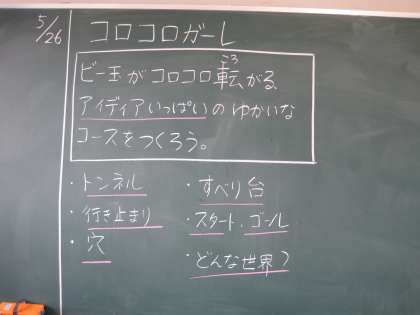 5/26
コロコロガーレ
ビー玉がコロコロ転がる、
アイディアいっぱいのゆかいな
コースをつくろう。
・トンネル
・行き止まり
・穴
・すべり台
・スタート・ゴール
・どんな世界?